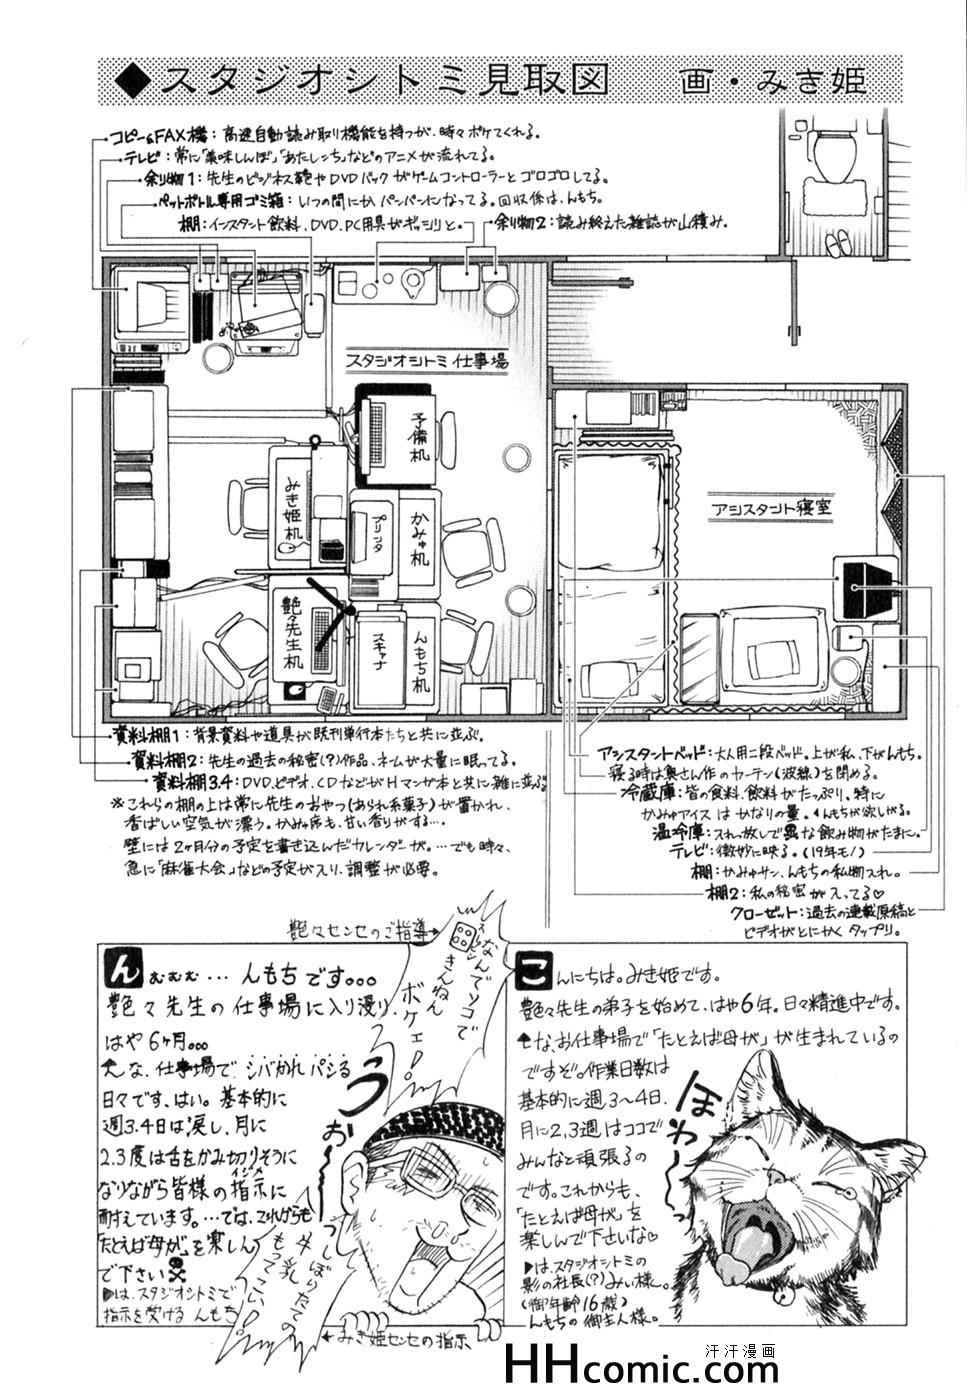 ◆スタジオシトミ見取図　画・みき姫
コピー&FAX機：高速自動読み取り機能を持つが、時々ボケてくれる。
テレビ：常に「美味しんぼ」「あたしンち」などのアニメが流れてる。
余り物1：先生のビジネス鞄やDVDパックがゲームコントローラーとゴロゴロしてる。
ペットボトル専用ゴミ箱：いつの間にかパンパンになってる。回収係は、んもち。
棚：インスタント飲料、DVD、PC用具がギッシリと。
余り物2：読み終えた雑誌が山積み。
スタジオシトミ仕事場
予備机
みき姫机
プリンタ
かみゅ机
艶々先生机
スキャナ
んもち机
アシスタント寝室
資料棚1：背景資料や道具が既刊単行本たちと共に並ぶ。
資料棚2：先生の過去の秘密(?)作品、ネームが大量に眠ってる。
資料棚3.4：DVD、ビデオ、CDなどがHマンガ本と共に雑に並ぶ
※これらの棚の上は常に先生のおやつ(あられ系菓子)が置かれ、
香ばしい空気が漂う。かみゅ席も、甘い香りがする…。
壁には2ヶ月分の予定を書き込んだカレンダーが。…でも時々、
急に「麻雀大会」などの予定が入り、調整が必要。
アシスタントベッド：大人用二段ベッド。上が私、下がんもち。
寝る時は奥さん作のカーテン(波線)を閉める。
冷蔵庫：皆の食料、飲料がたっぷり。特に
かみゅアイスはかなりの量。んもちが欲しがる。
温冷庫：スれっ放しで異な飲み物がたまに。
テレビ：微妙に映る。(19年モノ)
棚：かみゅサン、んもちの私物入れ。
棚2：私の秘密が入ってる♡
クローゼット：過去の連載原稿と
ビデオがとにかくタップリ。
艶々センセのご指導→
なんでソコで
きんねん
ボケェ！
んむむむ…んもちです。。。
艶々先生の仕事場に入り浸り、
はや6ヶ月。。。
そんな、仕事場でシバかれパシる
日々です、はい。基本的に
週3.4日は涙し、月に
2.3度は舌をかみ切りそうに
なりながら皆様の指示に
イジメ
耐えています。…では、これからも
「たとえば母が」を楽しん
で下さい☠
▶は、スタジオシトミで
指示を受けるんもち
うぉーっ
しぼりたての
牛乳
もってこい！
←みき姫センセの指示
こんにちは。みき姫です。
艶々先生の弟子を始めて、はや6年。日々精進中です。
そんな、お仕事場で「たとえば母が」が生まれているの
ですぞ。作業日数は
基本的に週3〜4日、
月に2,3週はココで
みんなと頑張るの
です。これからも、
「たとえば母が」を
楽しんで下さいな♡
▶は、スタジオシトミの
影の社長(?)みぃ様。
(御年齢16歳)
んもちの御主人様。
ほわ〜っ
汗汗漫画
HHcomic.com